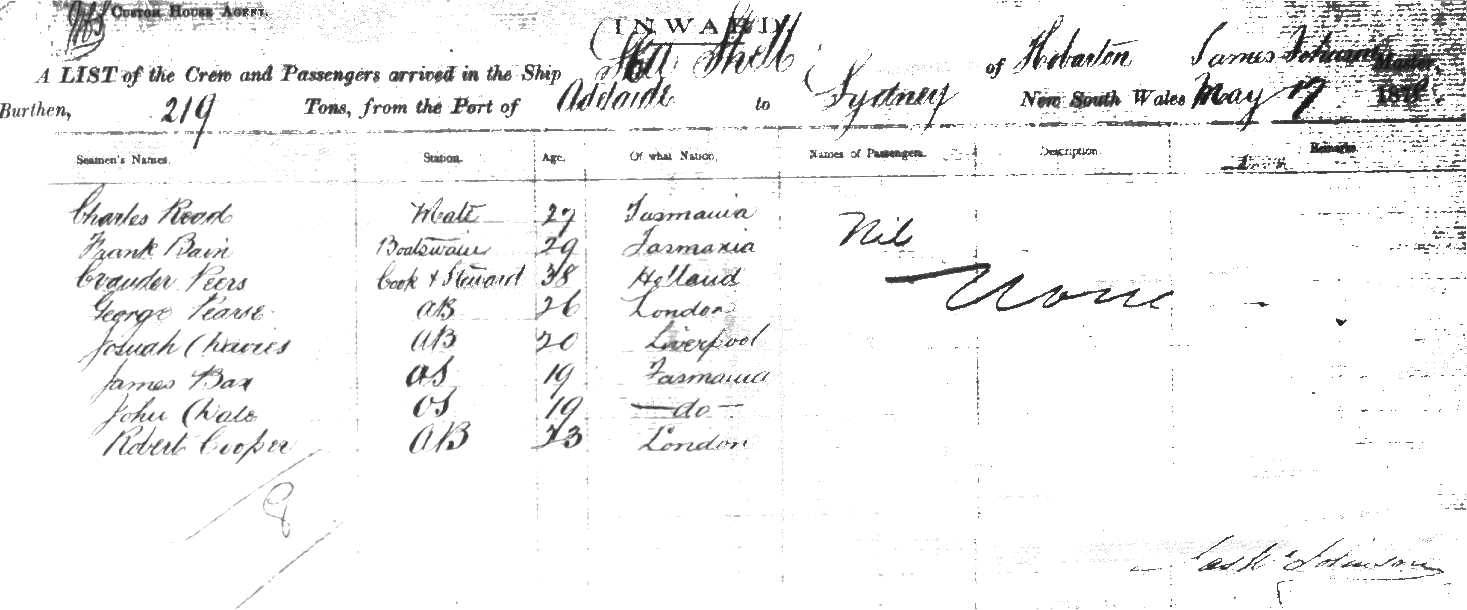 CUSTOM HOUSE AGENT.
INWARD
A LIST of the Crew and Passengers arrived in the Ship Sea Shell of Hobarton James Johnson Master,
Burthen, 219 Tons, from the Port of Adelaide to Sydney New South Wales May 17 187
Seamen's Names. Station. Age. Of what Nation. Names of Passengers. Description. Remarks
Charles Read Mate 27 Tasmania Nil
Frank Bain Boatswain 29 Tasmania
Peers Cook & Steward 38 Holland None
George Pearse AB 26 London
Josuah AB 20 Liverpool
James Bax OS 19 Tasmania
John OS 19 — do —
Robert Cooper AB 23 London
8
Jas Johnson